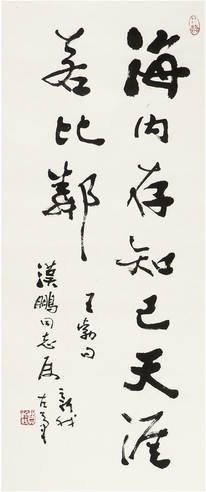 海内存知己天涯
若比鄰
王勃句
漢鵬同志属